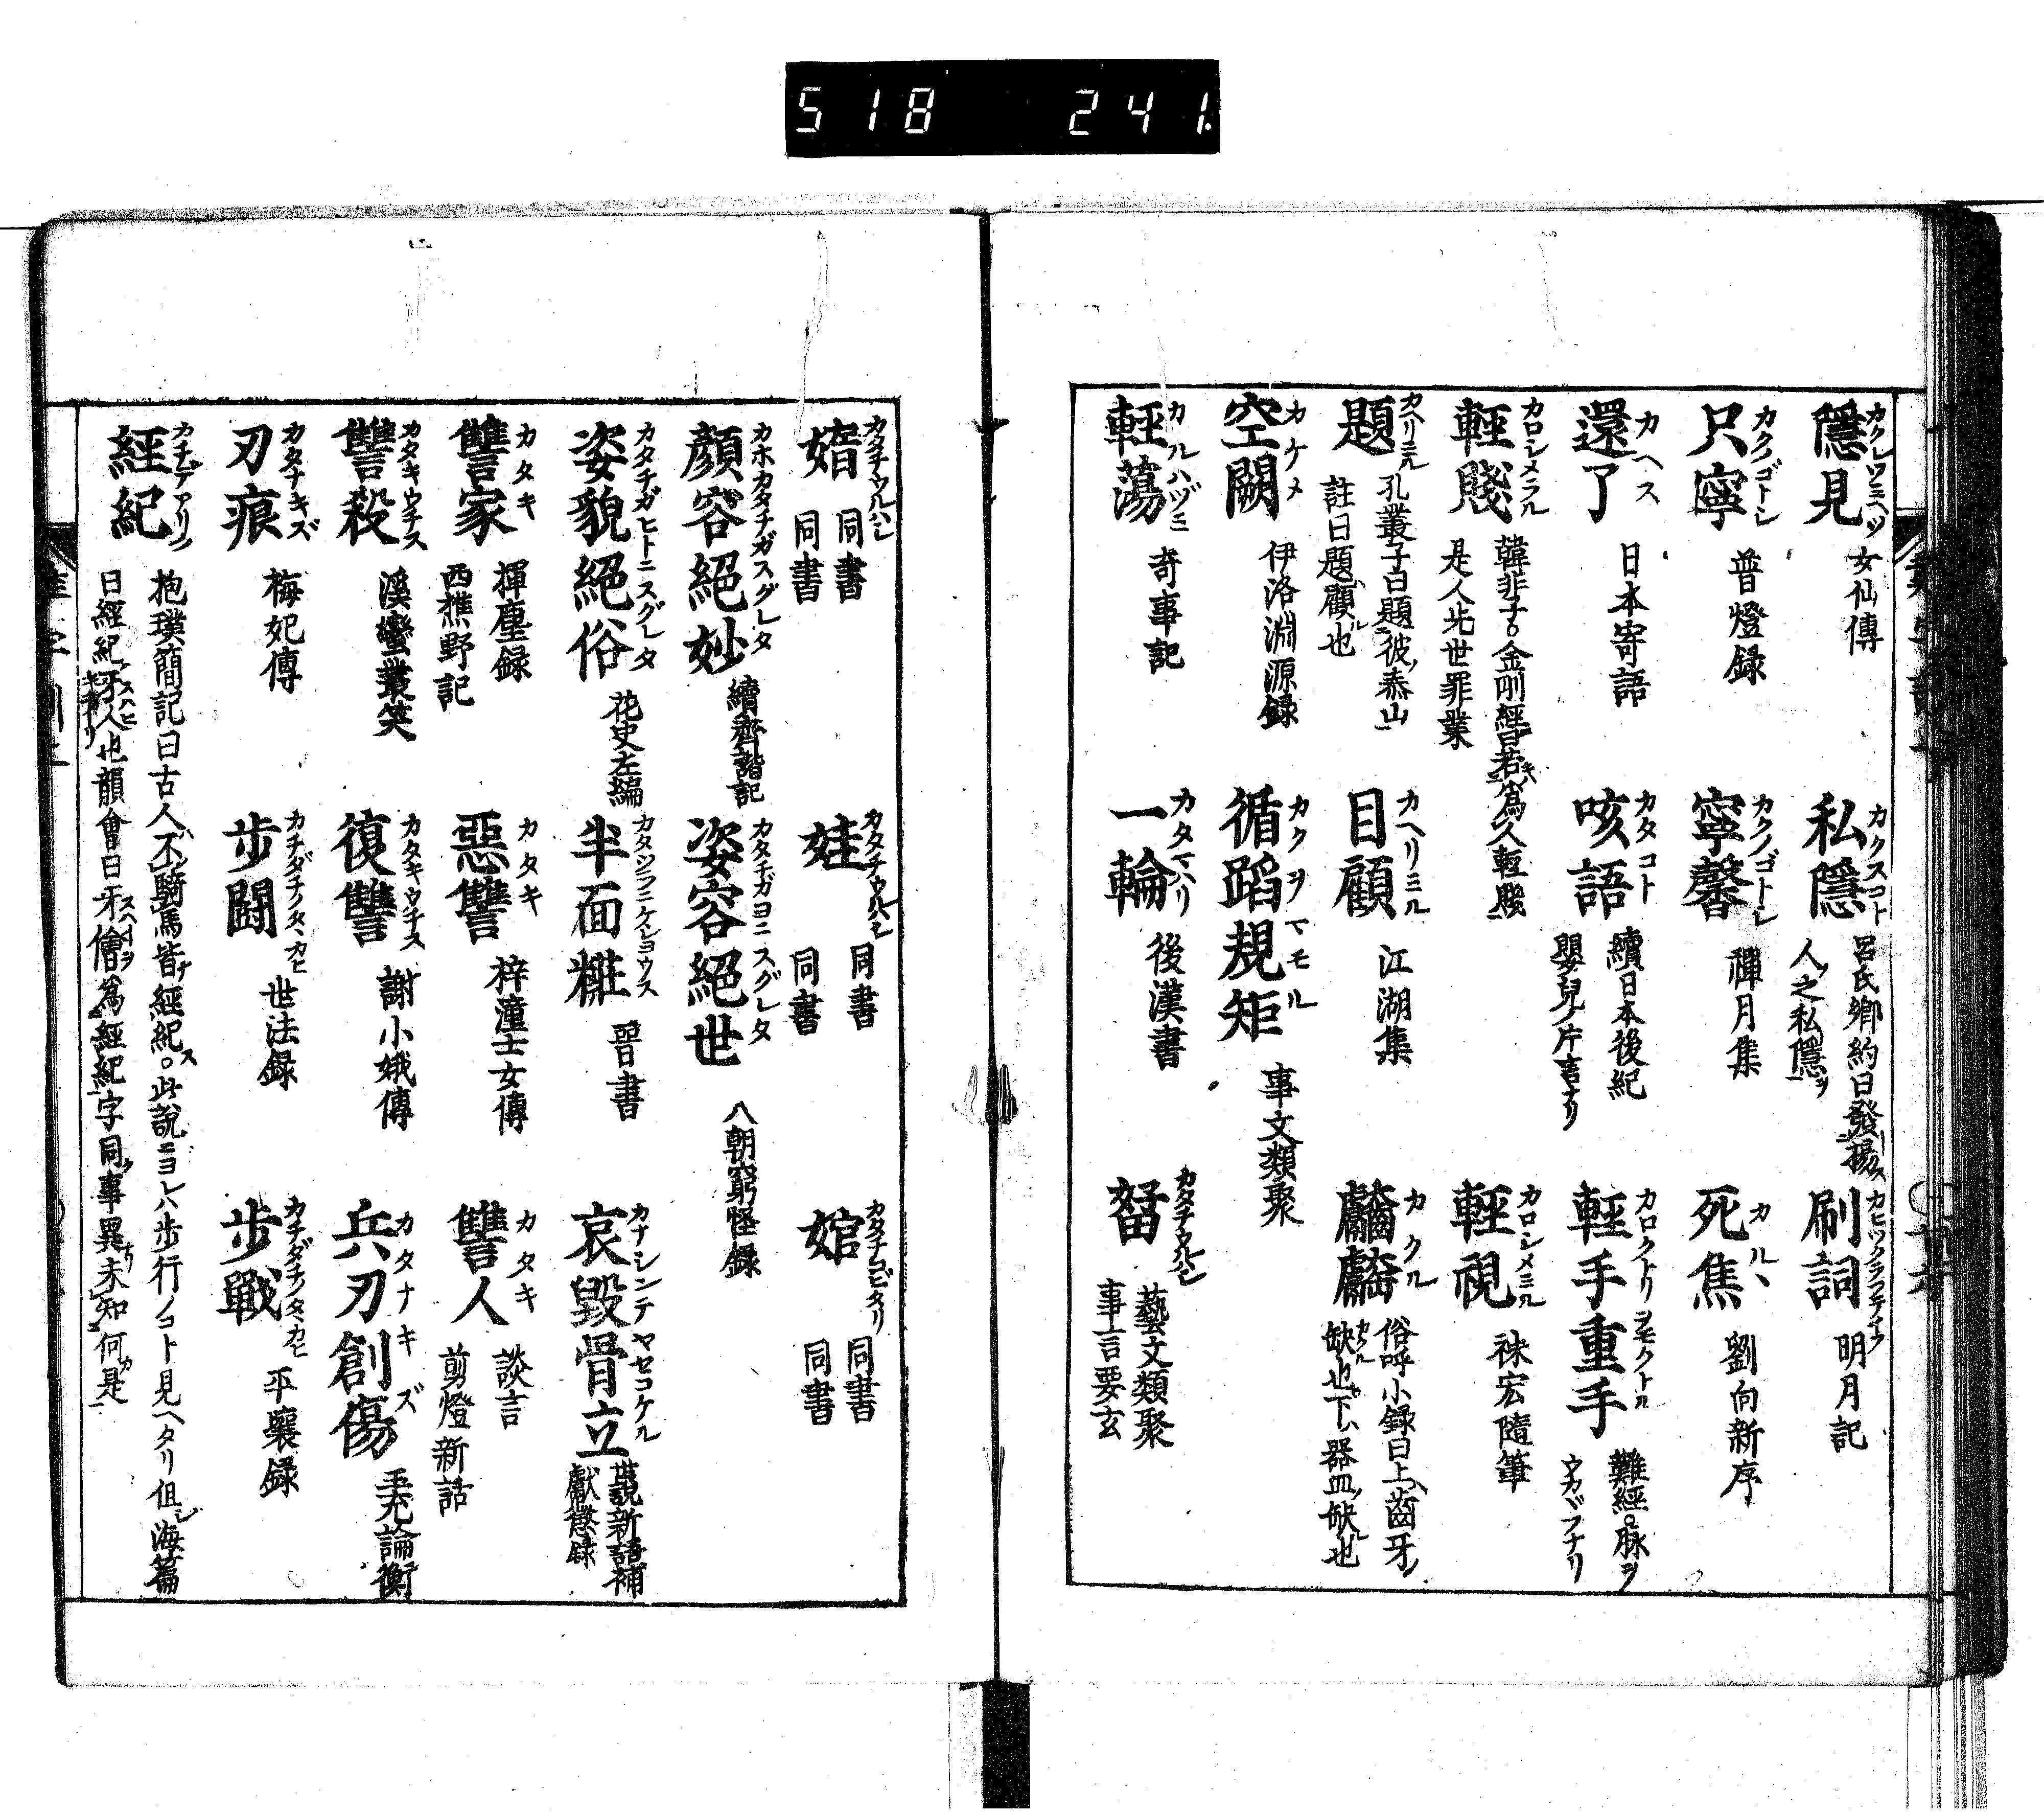 518 241.
隱見 カクレツミヘツ 女仙傳
私隱 カクスコト 呂氏鄉約曰發揚ス
人之私隱ヲ
刷詞 カヒツクラフテイフ 明月記
只寧 カクノゴトシ 普燈録
寧馨 カクノゴトシ 禪月集
死焦 カルヽ 劉向新序
還了 カヘス 日本寄語
咳語 カタコト 續日本後紀
嬰兒ノ片言ナリ
輕手重手 カロクトリヲモクトル 難經。脉ヲ
ウカヾフナリ
輕賤 カロシメラル 韓非子。金剛經曰若爲人輕賤
是人先世罪業
輕視 カロシメミル 祩宏隨筆
題 カヘリミル 孔叢子曰題彼泰山
註曰題顧也
目顧 カヘリミル 江湖集
カクル 俗呼小録曰上齒牙ノ
缺也下ハ器皿缺也
空闕 カケメ 伊洛淵源録
循蹈規矩 カクヲマモル 事文類聚
輕蕩 カルハヅミ 奇事記
一輪 カタヘリ 後漢書
カタチウルハシ 藝文類聚
事言要玄
媋 カタチウルハシ 同書
同書
娃 カタチウルハシ 同書
同書
婠 カタチコビタリ 同書
同書
顏容絕妙 カホカタチガスグレタ 續齊諧記
姿容絕世 カタチガヨニスグレタ 八朝窮怪録
姿貌絕俗 カタチガヒトニスグレタ 花史左編
半面粧 カタツラニケシヨウス 晉書
哀毀骨立 カナシンテヤセコケル 世說新語補
獻懲録
讐家 カタキ 揮麈録
西樵野記
惡讐 カタキ 梓潼士女傳
讐人 カタキ 談言
剪燈新話
讐殺 カタキウチス 溪蠻叢笑
復讐 カタキウチス 謝小娥傳
兵刃創傷 カタナキズ 王充論衡
刃痕 カタナキズ 梅妃傳
步鬪 カチダチノタヽカヒ 世法録
步戰 カチダチノタヽカヒ 平壤録
經紀 カチデアリク 抱璞簡記曰古人不騎馬皆經紀ス。此說ニヨレハ步行ノコト見ヘタリ但シ海篇
曰經紀牙人也韻會曰牙儈爲經紀字同事異未知何是